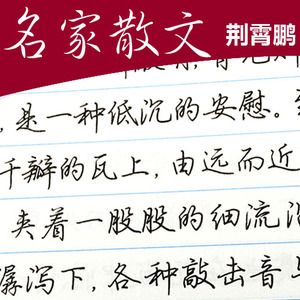 名家散文
荆霄鹏
,是一种低沉的安慰。
千瓣的瓦上,由远而近
夹着一股股的细流沿
潺泻下,各种敲击音与